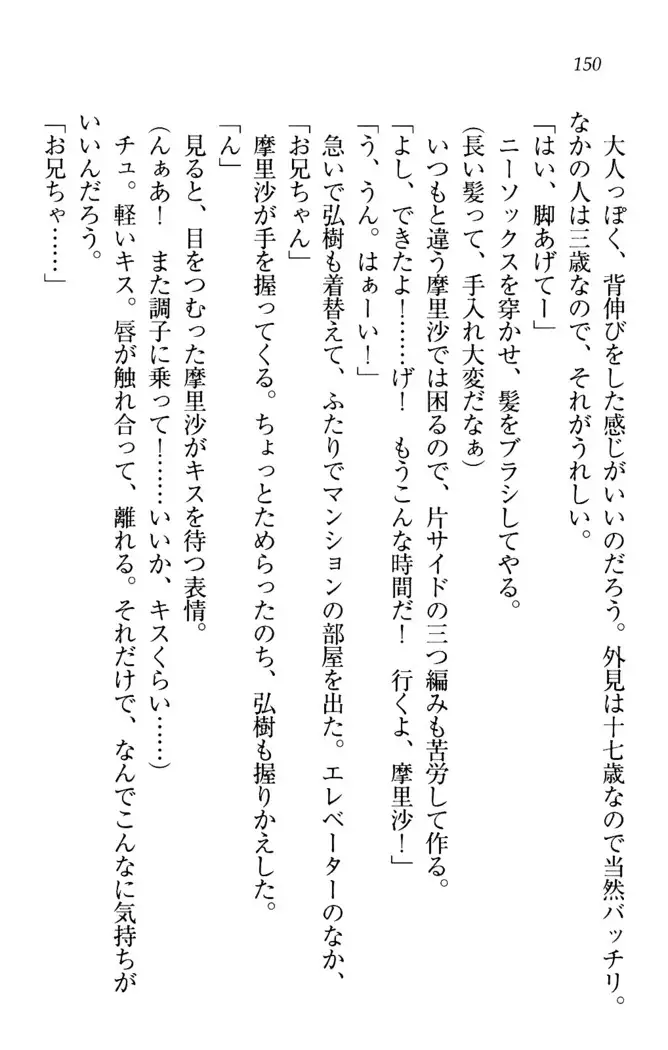 150
大人っぽく、背伸びをした感じがいいのだろう。外見は十七歳なので当然バッチリ。
なかの人は三歳なので、それがうれしい。
「はい、脚あげてー」
ニーソックスを穿かせ、髪をブラシしてやる。
(長い髪って、手入れ大変だなぁ)
いつもと違う摩里沙では困るので、片サイドの三つ編みも苦労して作る。
「よし、できたよ!……げ! もうこんな時間だ! 行くよ、摩里沙!」
「う、うん。はぁーい!」
急いで弘樹も着替えて、ふたりでマンションの部屋を出た。エレベーターのなか、
「お兄ちゃん」
摩里沙が手を握ってくる。ちょっとためらったのち、弘樹も握りかえした。
「ん」
見ると、目をつむった摩里沙がキスを待つ表情。
(んぁあ! また調子に乗って!……いいか、キスくらい……)
チュ。軽いキス。唇が触れ合って、離れる。それだけで、なんでこんなに気持ちが
いいんだろう。
「お兄ちゃ……」